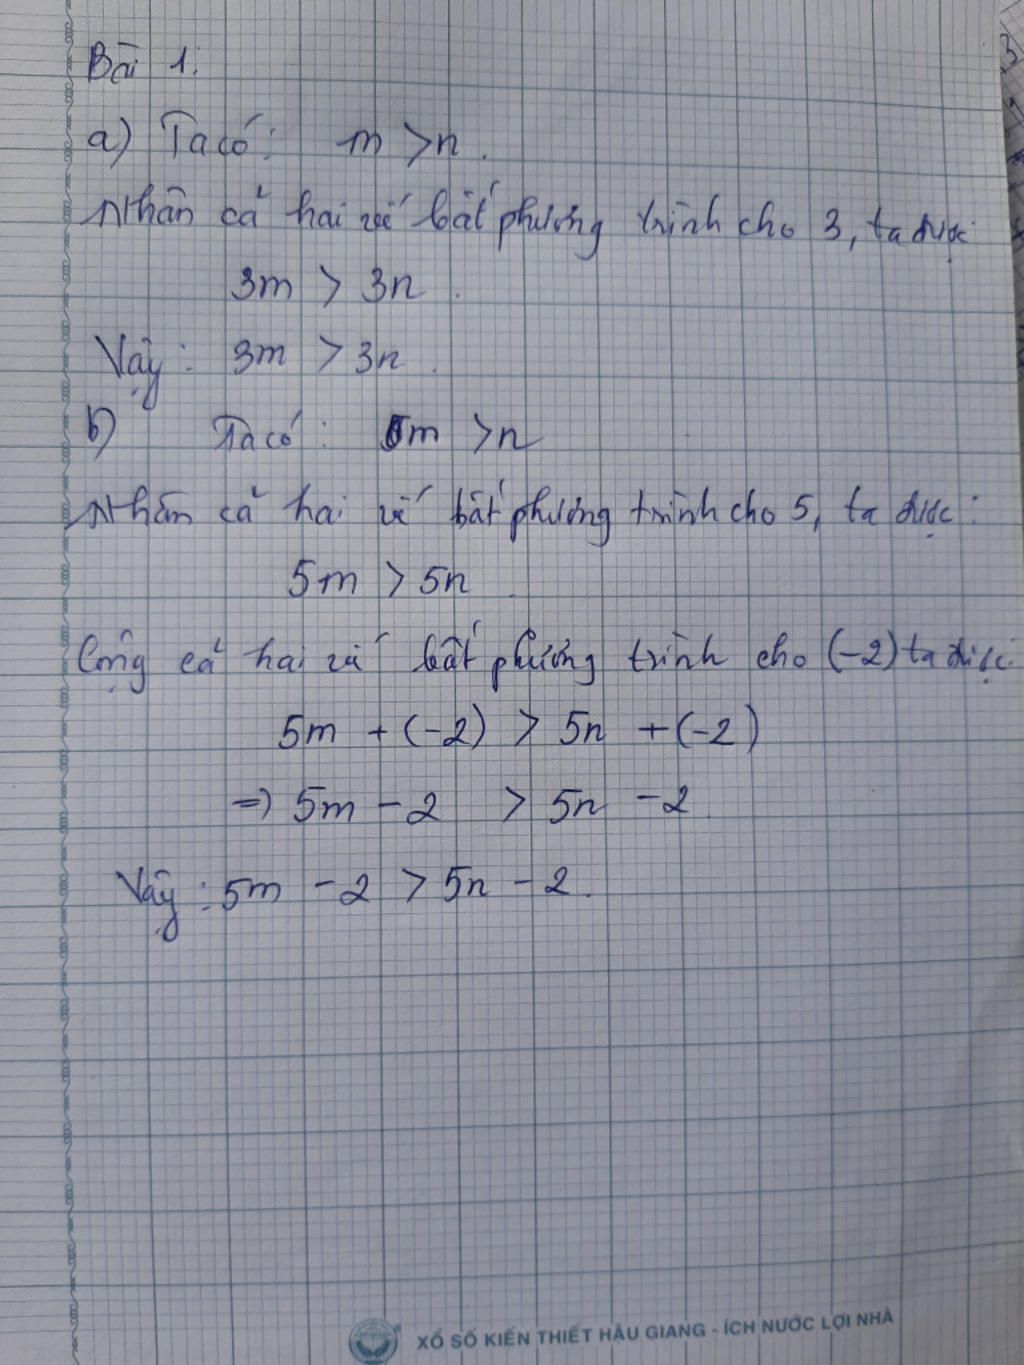 Bài 1.
a) Ta có: m > n.
Nhân cả hai vế bất phương trình cho 3, ta được
3m > 3n.
Vậy: 3m > 3n.
b) Ta có: m > n
Nhân cả hai vế bất phương trình cho 5, ta được:
5m > 5n.
Cộng cả hai vế bất phương trình cho (-2) ta được:
5m + (-2) > 5n + (-2)
=> 5m - 2 > 5n - 2.
Vậy: 5m - 2 > 5n - 2.
XỔ SỐ KIẾN THIẾT HẬU GIANG - ÍCH NƯỚC LỢI NHÀ